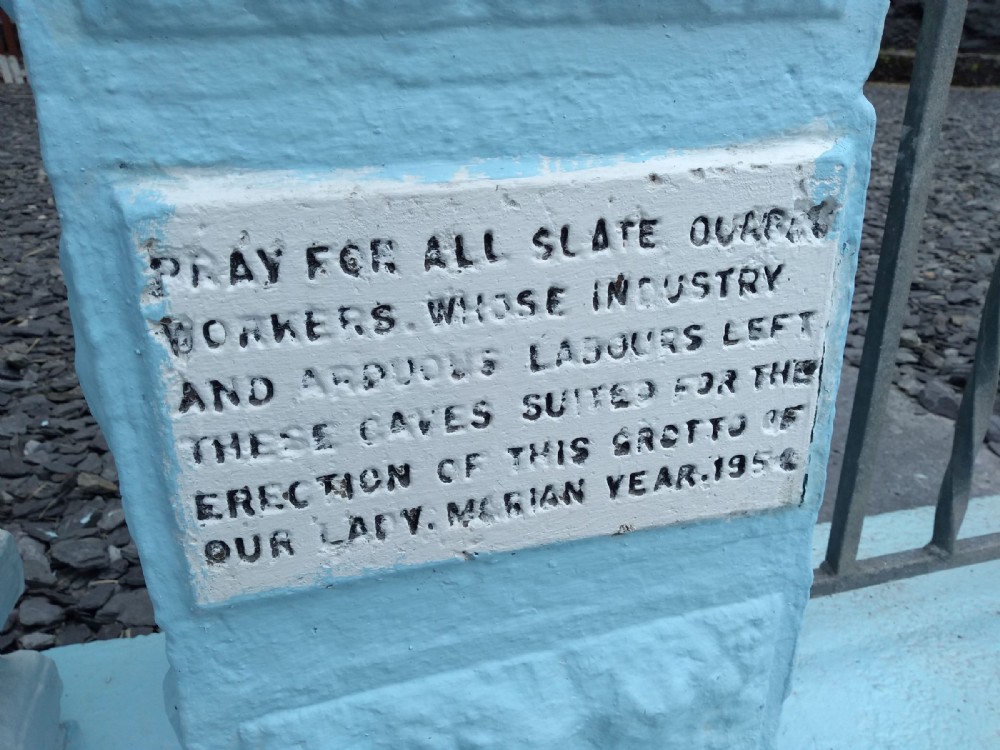 PRAY FOR ALL SLATE QUARRY
WORKERS. WHOSE INDUSTRY
AND ARDUOUS LABOURS LEFT
THESE CAVES SUITED FOR THE
ERECTION OF THIS GROTTO OF
OUR LADY. MARIAN YEAR. 1954